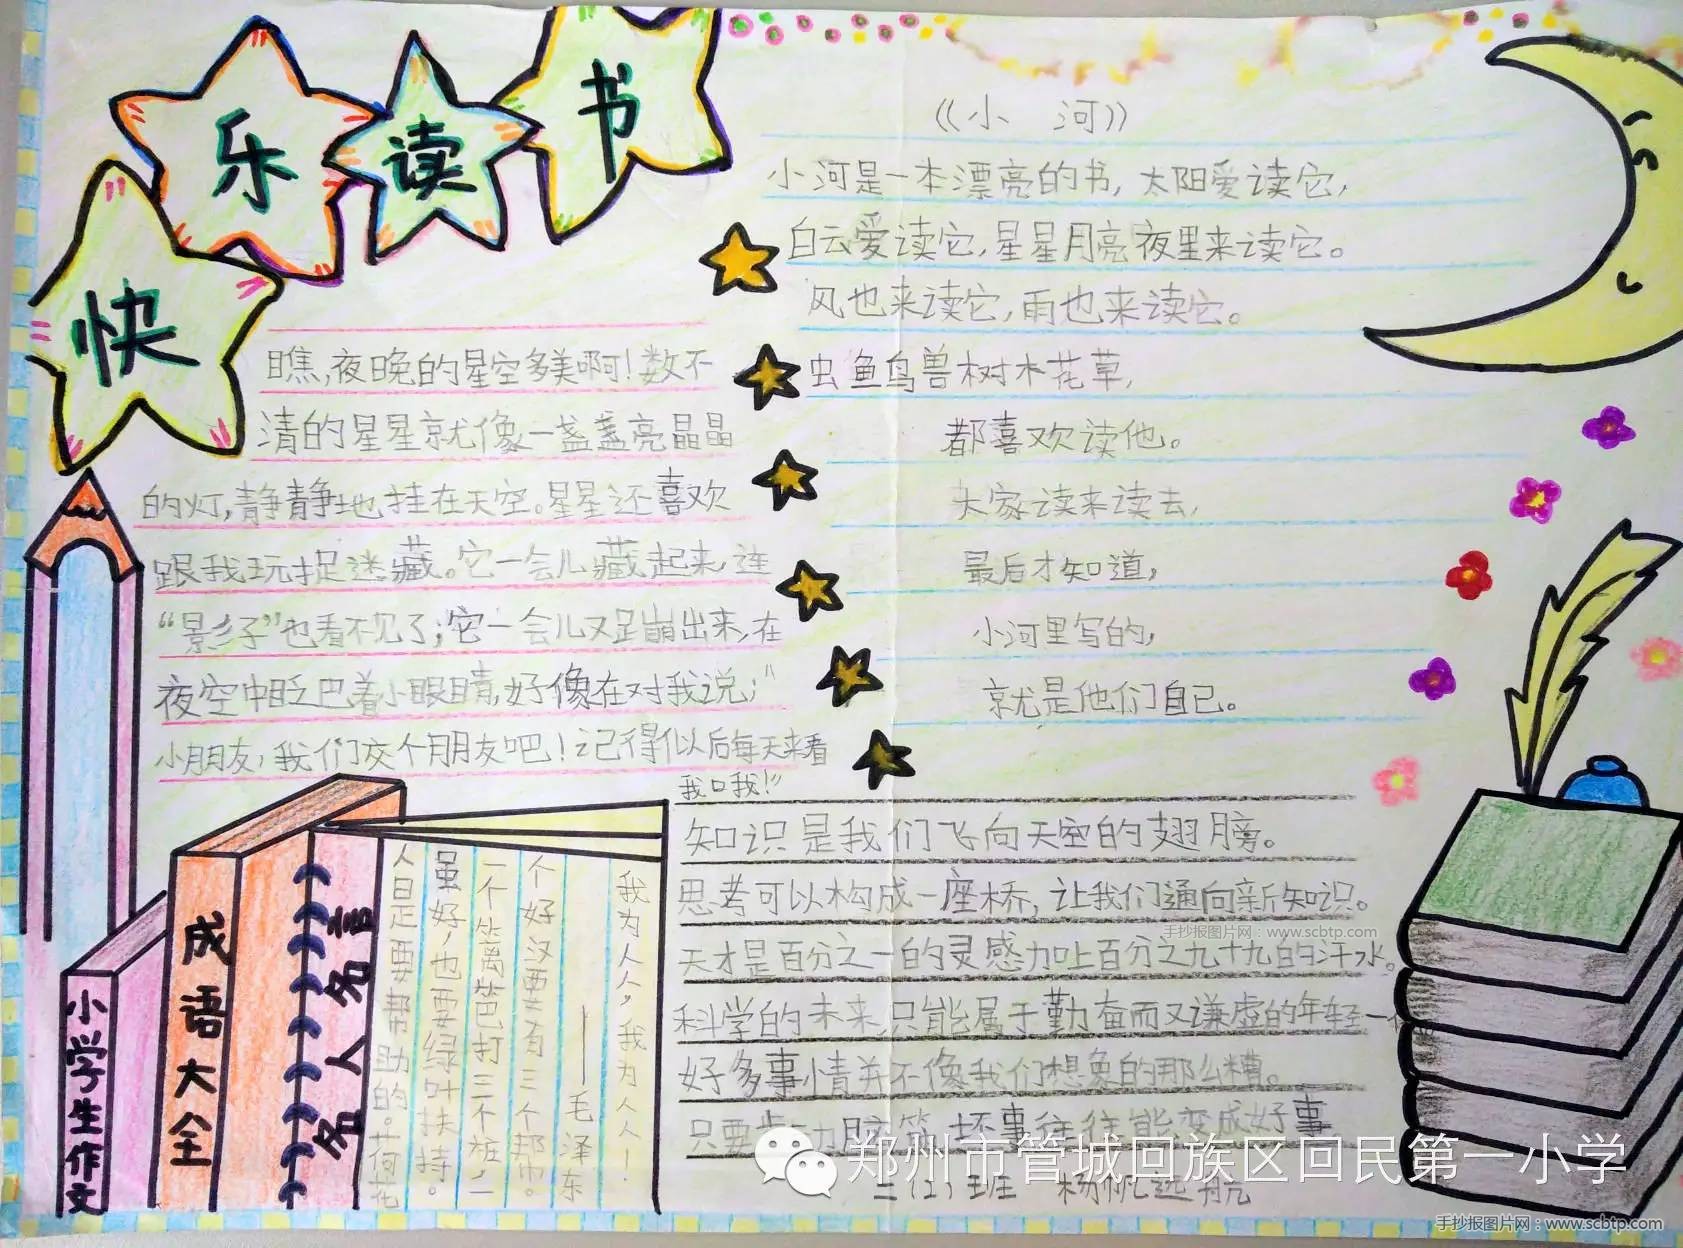 快乐读书
《小 河》
小河是一本漂亮的书，太阳爱读它，
白云爱读它，星星月亮夜里来读它。
风也来读它，雨也来读它。
虫鱼鸟兽树木花草，
都喜欢读他。
大家读来读去，
最后才知道，
小河里写的，
就是他们自己。
瞧，夜晚的星空多美啊！数不
清的星星就像一盏盏亮晶晶
的灯，静静地挂在天空。星星还喜欢
跟我玩捉迷藏。它一会儿藏起来，连
“影子”也看不见了；它一会儿又蹦出来，在
夜空中眨巴着小眼睛，好像在对我说：“
小朋友，我们交个朋友吧！记得以后每天来看
我口我！”
知识是我们飞向天空的翅膀。
思考可以构成一座桥，让我们通向新知识。
天才是百分之一的灵感加上百分之九十九的汗水。
科学的未来，只能属于勤奋而又谦虚的年轻一
好多事情并不像我们想象的那么糟。
只要 坏事往往能变成好事
三（2）班 杨帆远航
小学生作文
成语大全
名人名言
我为人人，我为人人！
——毛泽东
个好汉要有三个帮巾。
一个篱笆打三个桩，一
虽好，也要绿叶扶持。
人是要帮助的。荷花
手抄报图片网：www.scbtp.com
郑州市管城回族区回民第一小学
手抄报图片网：www.scbtp.com